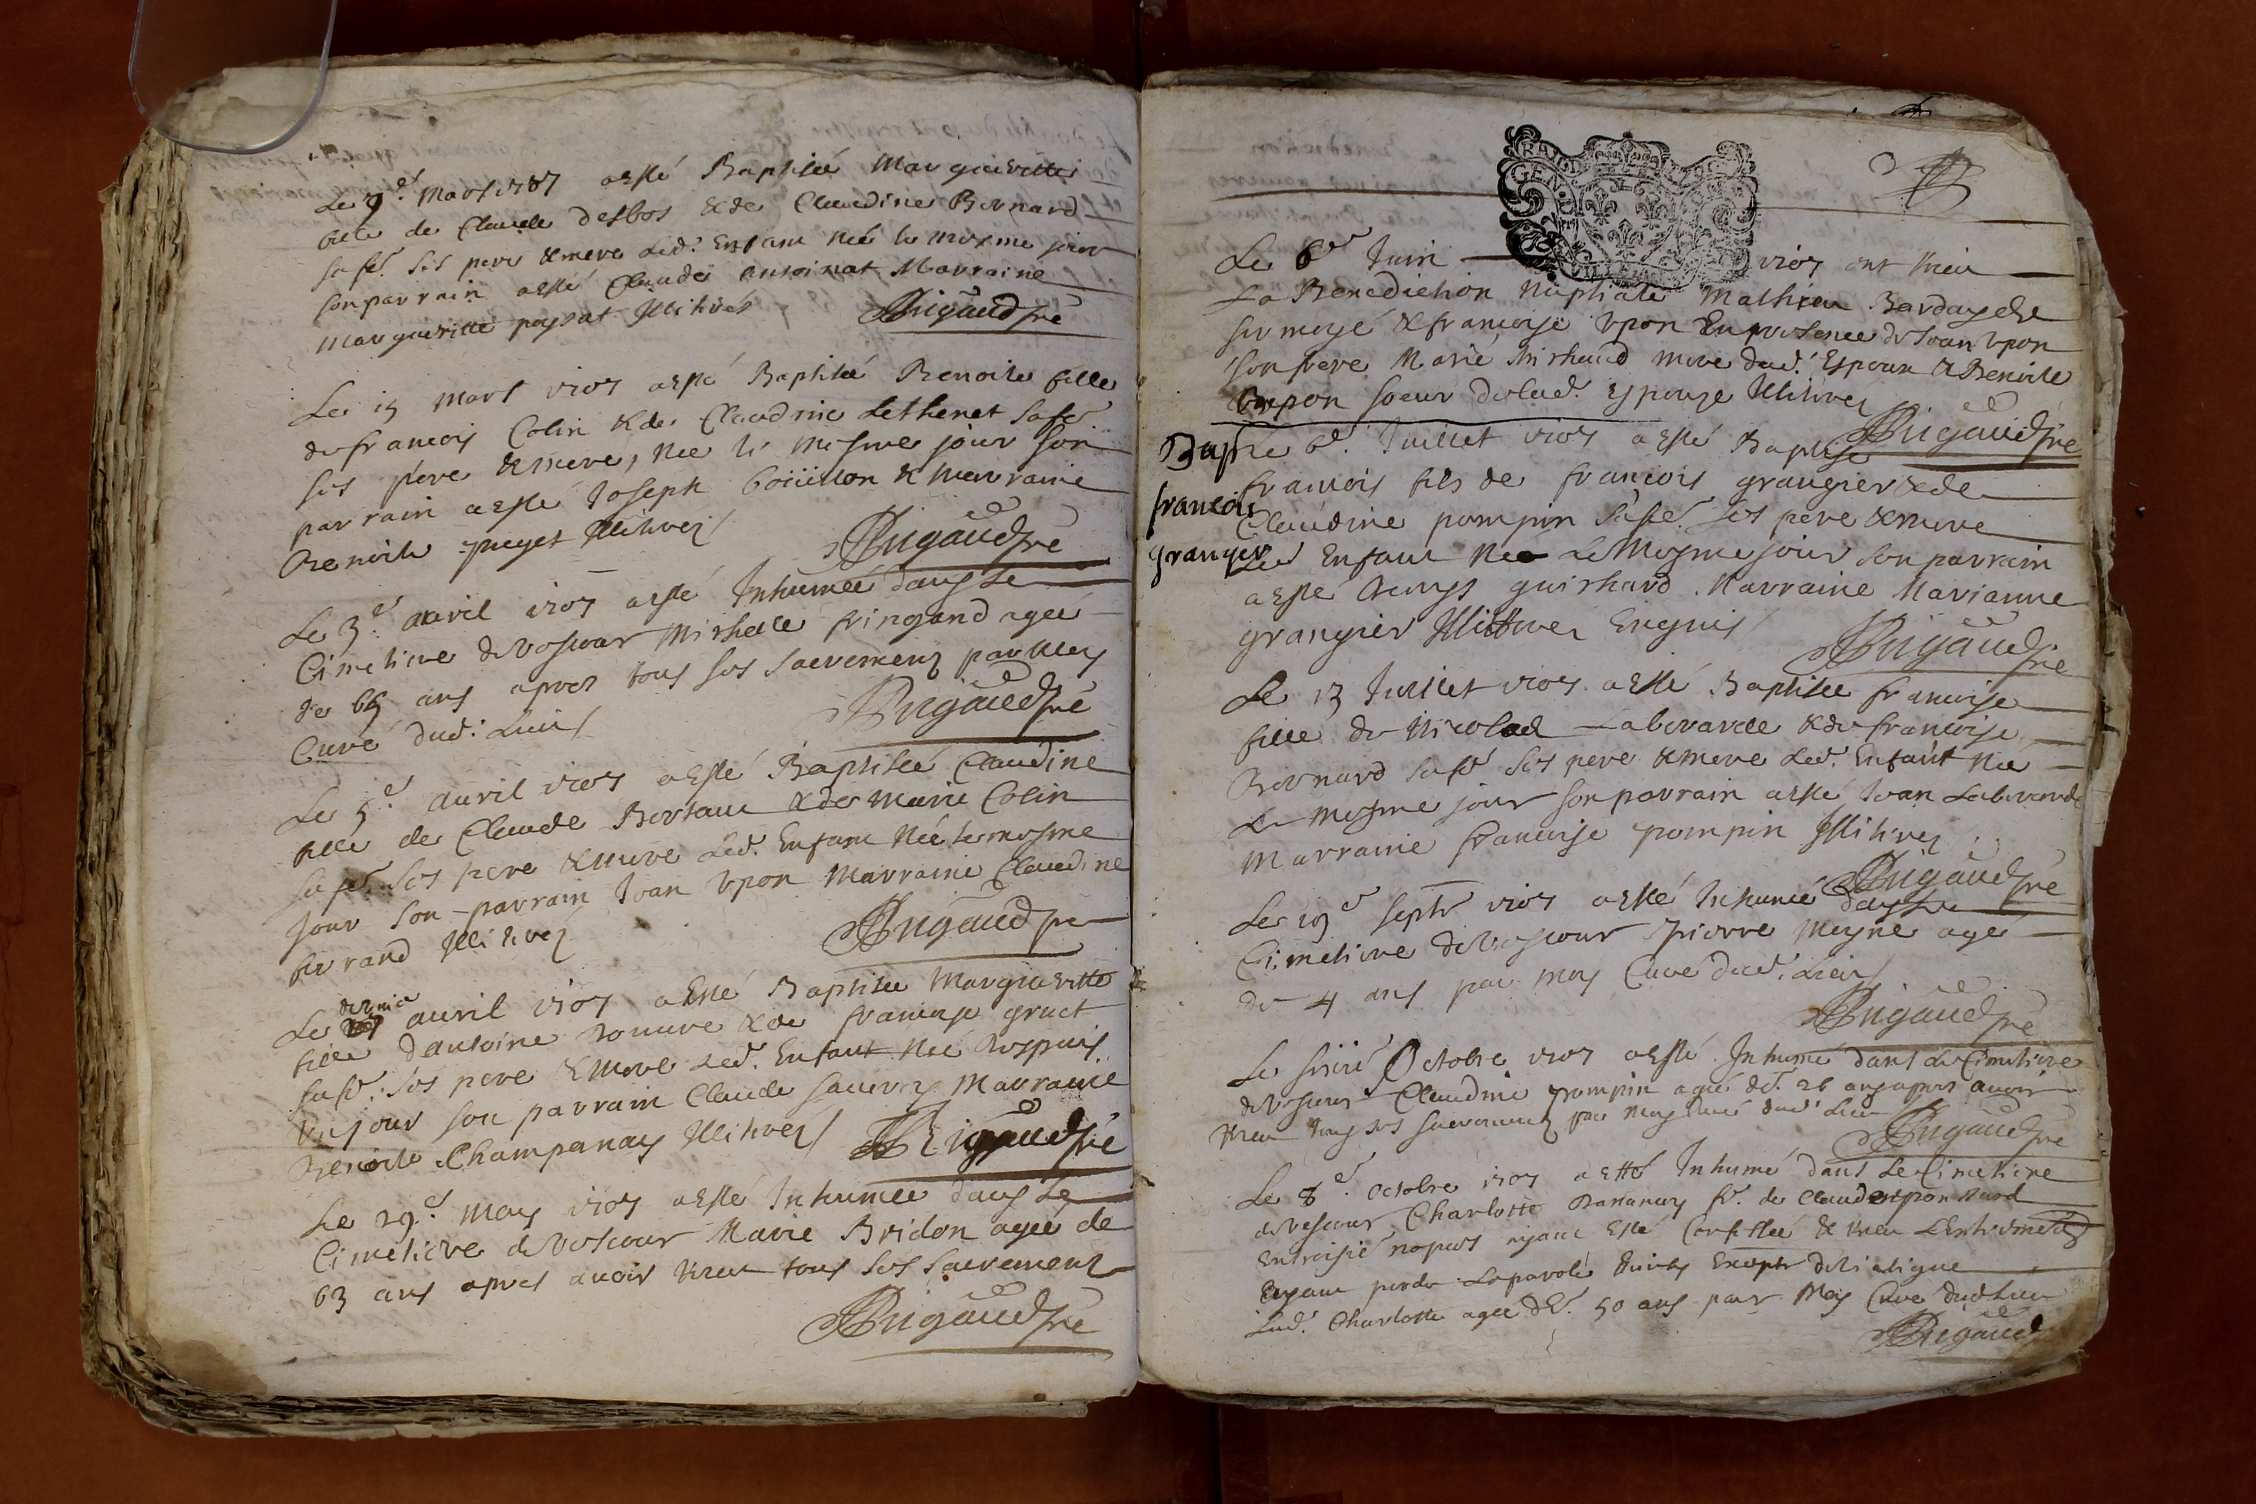 Le 9e. Mars 1707 a esté Baptisée Margueritte
fille de Claude desbos & de Claudine Bernard
sa fe. ses pere & mere led. Enfant née le mesme jour
son parrain a esté Claude antoinat Marraine
Margueritte paysat Illitirés Rigaud pre
Le 15 mars 1707 a esté Baptisée Benoite fille
de francois Colin & de Claudine Lethenet sa fe
ses père & mere, née le mesme jour son
parrain a esté Joseph boüillon & marraine
Benoite puget Illitirés
Rigaud pre
Le 3e. avril 1707 a esté Inhumée dans le
Cimetiere de Vescour Michelle fringand agée
de 65 ans apres tous ses sacremens par Moy
Curé dud. Lieu Rigaud pre
Le 5e. avril 1707 a esté Baptisée Claudine
fille de Claude Bertaut & de Marie Colin
sa fe. ses pere & mere led. Enfant née le mesme
jour son parrain Jean Upon Marraine Claudine
ferrand Illitirés Rigaud pre
Le dernier avril 1707 a Esté Baptisée Margueritte
fille d'antoine & de francoise
sa fe. ses pere & mere led. Enfant née despuis
un jour son parrain Claude Marraine
Benoite Champanay Illitirés Rigaud pre
Le 29e. may 1707 a esté Inhumée dans le
Cimetiere de Vescour Marie Bridon agée de
63 ans apres avoir receu tous ses sacremens
Rigaud pre
GEN
Le 6e Juin 1707 ont receu
La Benediction Nuptiale Mathieu
& francoise Upon En presence de Jean Upon
son frere Marie Michaud mere dud. Espoux & Benoite
Upon soeur de lad. Espouze Illitirés
Rigaud pre
Bap
francois
granger
Le 6e. Juillet 1707 a esté Baptisé
francois fils de francois grangier & de
Claudine pompin sa fe. ses pere & mere
led Enfant Né Le Mesme jour son parrain
a esté guichard Marraine Marianne
grangier Illitirés Enquis
Rigaud pre
Le 13 Juillet 1707 a esté Baptisée francoise
fille de Nicolas Laberarde & de francoise
Bernard sa fe ses pere & mere led. Enfant Née
Le Mesme jour son parrain a esté Jean Laberarde
Marraine francoise pompin Illitirés
Rigaud pre
Le 19e septre 1707 a esté Inhumé dans le
Cimetiere de Vescour pierre Meyne agé
de 4 ans par moy Curé dud. Lieu
Rigaud pre
Le Octobre 1707 a esté Inhumé dans Le Cimetiere
de Vescour Claudine pompin agée de. 26 ans apres avoir
receu tous ses sacremens par moy Curé dud Lieu
Rigaud pre
Le 8e. Octobre 1707 a esté Inhumé dans Le Cimetiere
de Vescour Charlotte fe. de Claude
ayant Esté Confessée & receu
ayant perdu La parole
Lad. Charlotte agée de. 50 ans par Moy Curé dud Lieu
Rigaud